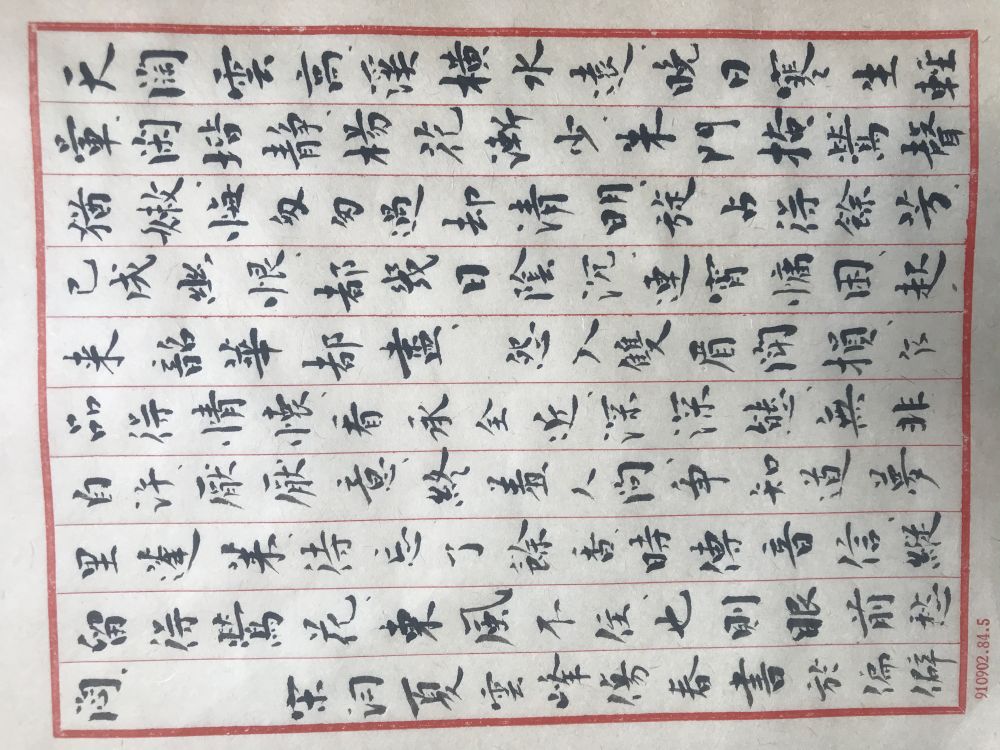 天闊雲高溪橫水遠晚日寒生輕
暈閑堦靜楊花漸少朱門掩鶯聲
猶嫩悔匆匆過却清明旋占得餘芳
已成幽恨都幾日陰沉連宵慵困起
来韶華都盡 怨入雙眉閑損乍
品得情懷看承全近深深態無非
自許厭厭意終羞人問爭知道夢
里蓬萊待忘了餘香時傳音信縱
留得鶯花東風不住也則眼前愁
悶 宋词夏雲峰傷春書於偏僻
910902.84.5